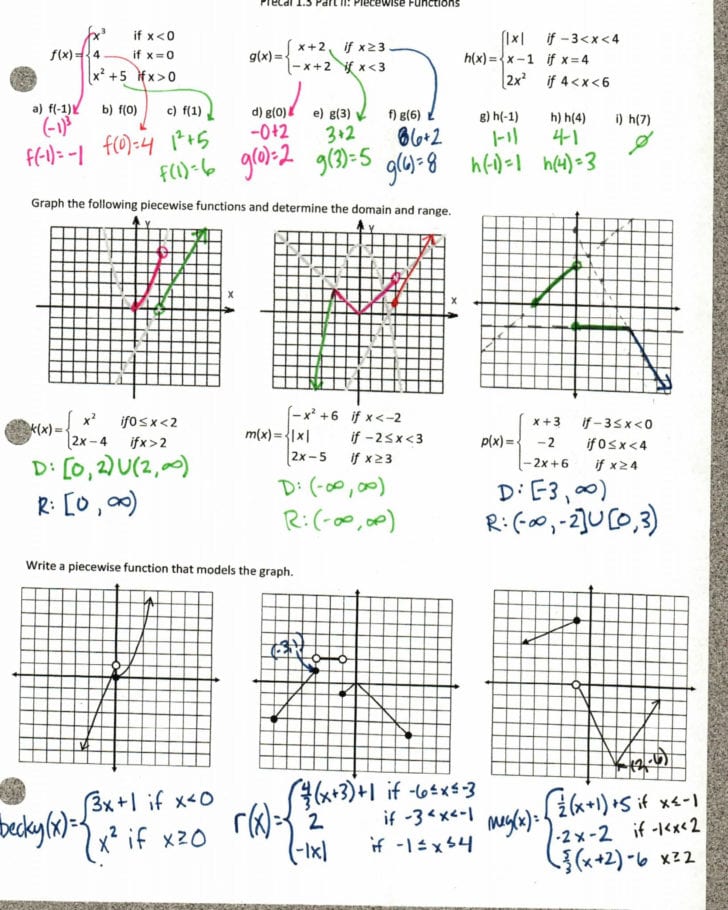 Precal 1.3 Part II: Piecewise Functions
f(x)= { x³ if x<0
4 if x=0
x²+5 if x>0
g(x)= { x+2, if x≥3
−x+2 if x<3
h(x)= { |x| if −3<x<4
x−1 if x=4
2x² if 4<x<6
a) f(-1) b) f(0) c) f(1) d) g(0) e) g(3) f) g(6) g) h(-1) h) h(4) i) h(7)
(-1)³ 1²+5 -0+2 3+2 6+2 |-1| 4-1 ∅
f(-1)=-1 f(0)=4 f(1)=6 g(0)=2 g(3)=5 g(6)=8 h(-1)=1 h(4)=3
Graph the following piecewise functions and determine the domain and range.
Y Y
X X
k(x)= { x² if 0≤x<2
2x−4 if x>2
D: [0,2)∪(2,∞)
R: [0,∞)
m(x)= { −x²+6 if x<−2
|x| if −2≤x<3
2x−5 if x≥3
D: (-∞,∞)
R: (-∞,∞)
p(x)= { x+3 if −3≤x<0
−2 if 0≤x<4
−2x+6 if x≥4
D: [-3,∞)
R: (-∞,-2]∪[0,3)
Write a piecewise function that models the graph.
(-3,1)
(2,-6)
becky(x)= { 3x+1 if x<0
x² if x≥0
r(x)= { 4/3(x+3)+1 if -6≤x≤-3
2 if -3<x<-1
-|x| if -1≤x≤4
meg(x)= { 1/2(x+1)+5 if x≤-1
-2x-2 if -1<x<2
5/3(x+2)-6 x≥2